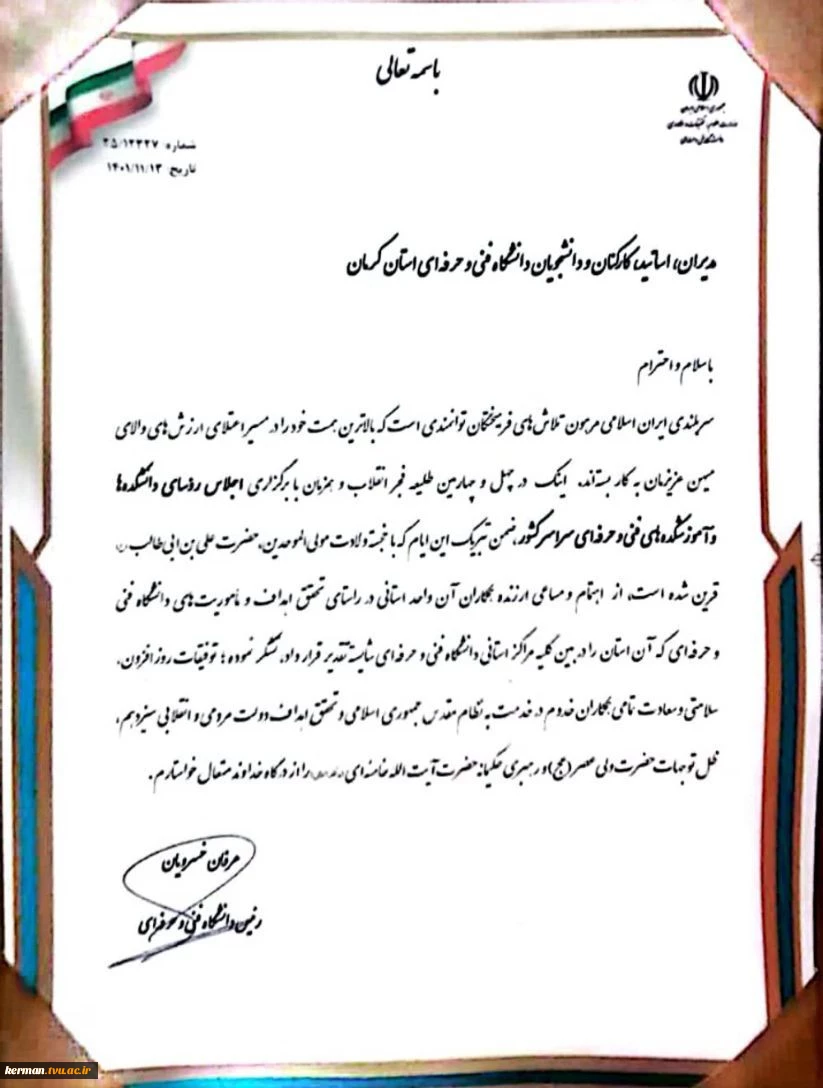 باسمه تعالی
جمهوری اسلامی ایران
وزارت علوم، تحقیقات و فناوری
دانشگاه فنی و حرفه‌ای
شماره: ۲۵/۱۲۳۲۷
تاریخ: ۱۴۰۱/۱۱/۱۳
مدیران، اساتید، کارکنان و دانشجویان دانشگاه فنی و حرفه ای استان کرمان
با سلام و احترام
سربلندی ایران اسلامی مرهون تلاش های فرهیختگان توانمندی است که بالاترین همت خود را در مسیر اعتلای ارزش های والای
میهن عزیزمان به کار بسته‌اند. اینک در چهل و چهارمین طلیعه فجر انقلاب و همزمان با برگزاری اجلاس رؤسای دانشکده‌ها
و آموزشکده‌های فنی و حرفه‌ای سراسر کشور، ضمن تبریک این ایام که با خجسته ولادت مولی الموحدین، حضرت علی بن ابی طالب (ع)
قرین شده است، از اهتمام و مساعی ارزنده همکاران آن واحد استانی در راستای تحقق اهداف و مأموریت‌های دانشگاه فنی
و حرفه‌ای که آن استان را در بین کلیه مراکز استانی دانشگاه فنی و حرفه‌ای شایسته تقدیر قرار داد، تشکر نموده؛ توفیقات روز افزون،
سلامتی و سعادت تمامی همکاران خدوم در خدمت به نظام مقدس جمهوری اسلامی و تحقق اهداف دولت مردمی و انقلابی سیزدهم،
ظل توجهات حضرت ولی عصر (عج) و رهبری حکیمانه حضرت آیت الله خامنه‌ای را از درگاه خداوند متعال خواستارم.
عرفان خسرویان
رئیس دانشگاه فنی و حرفه‌ای
kerman.tvu.ac.ir